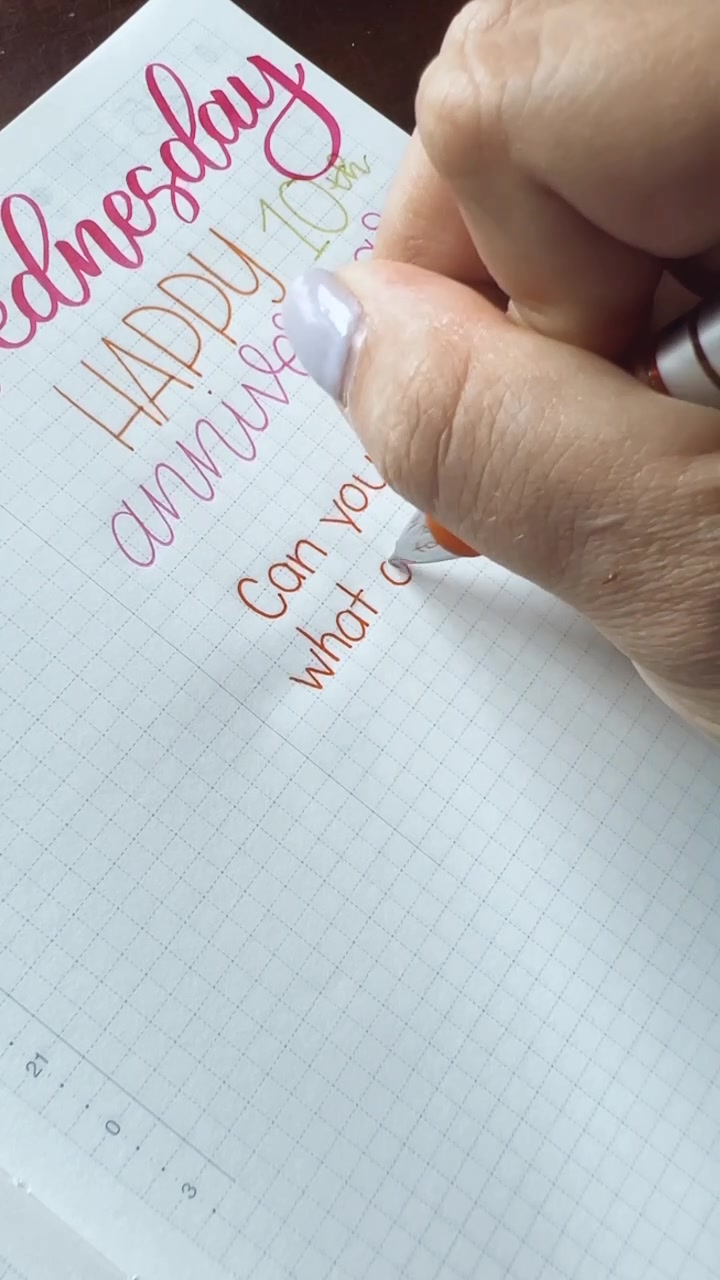 ednesday
HAPPY 10th
annive
Can you
what
21
0
3